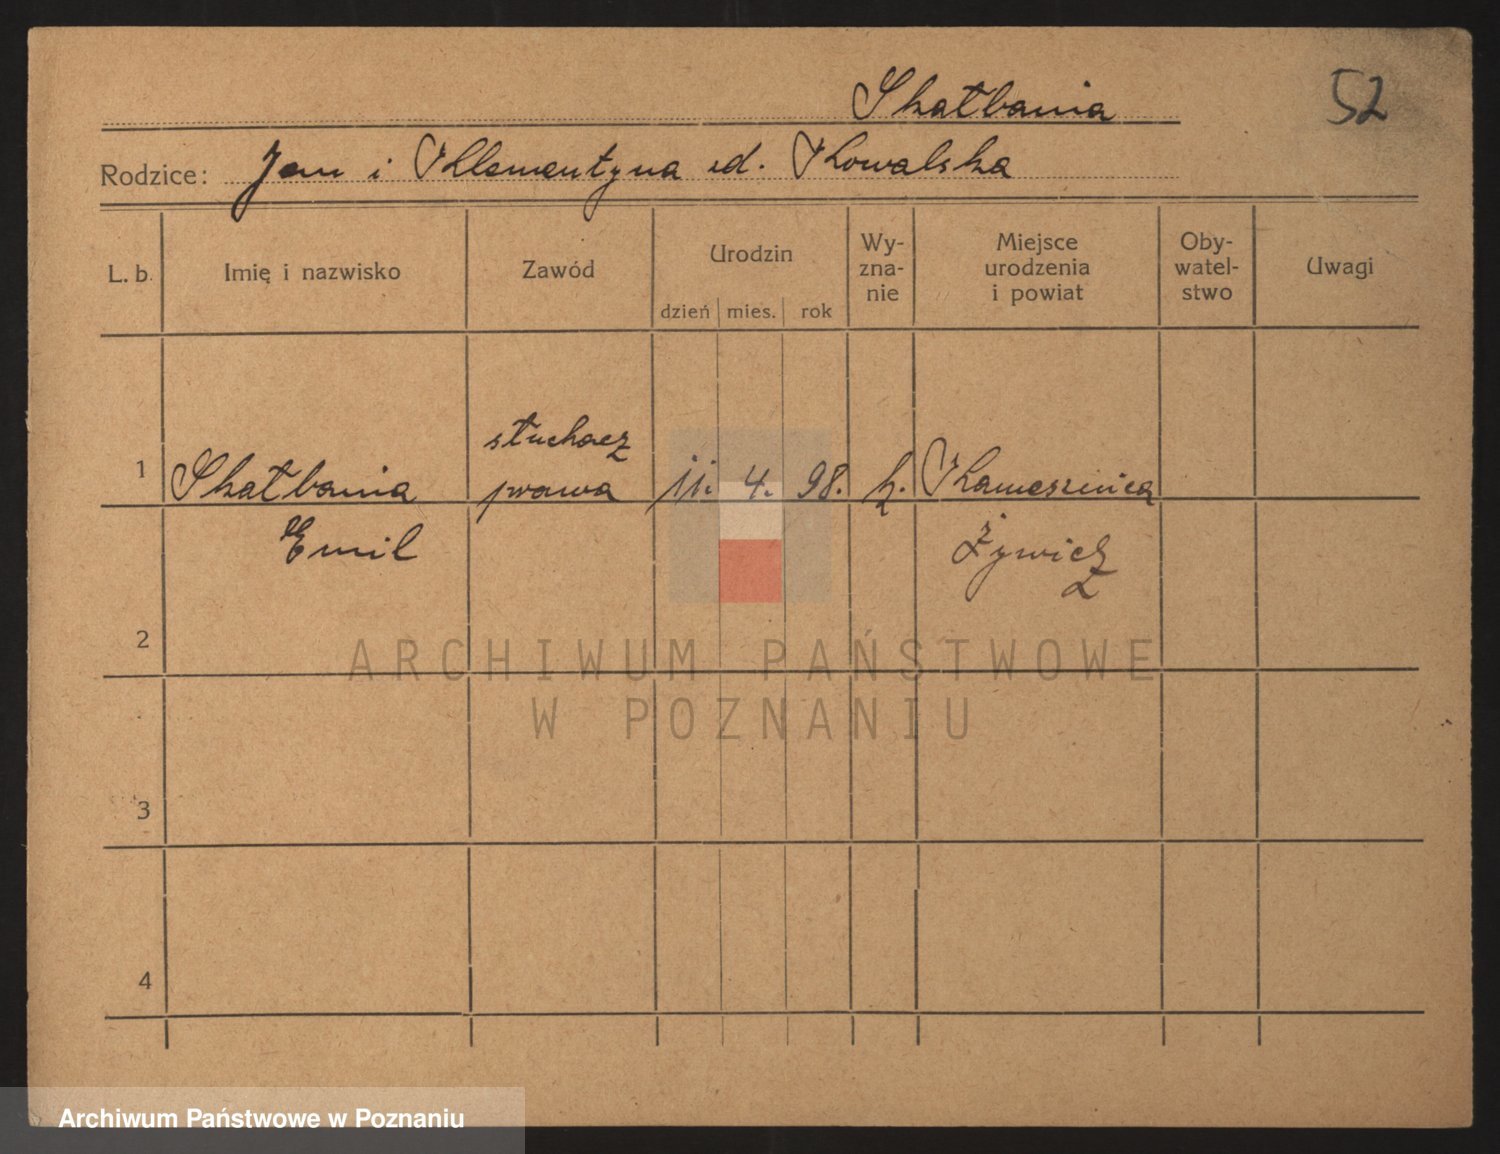 Skałbania
52
Rodzice: Jan i Klementyna zd. Kowalska
L. b.
Imię i nazwisko
Zawód
Urodzin
dzień mies. rok
Wy-
zna-
nie
Miejsce
urodzenia
i powiat
Oby-
watel-
stwo
Uwagi
1
Skałbania
Emil
słuchacz
prawa
11. 4. 98.
k.
Kamesznica
Żywiec
2
3
4
ARCHIWUM PAŃSTWOWE
W POZNANIU
Archiwum Państwowe w Poznaniu